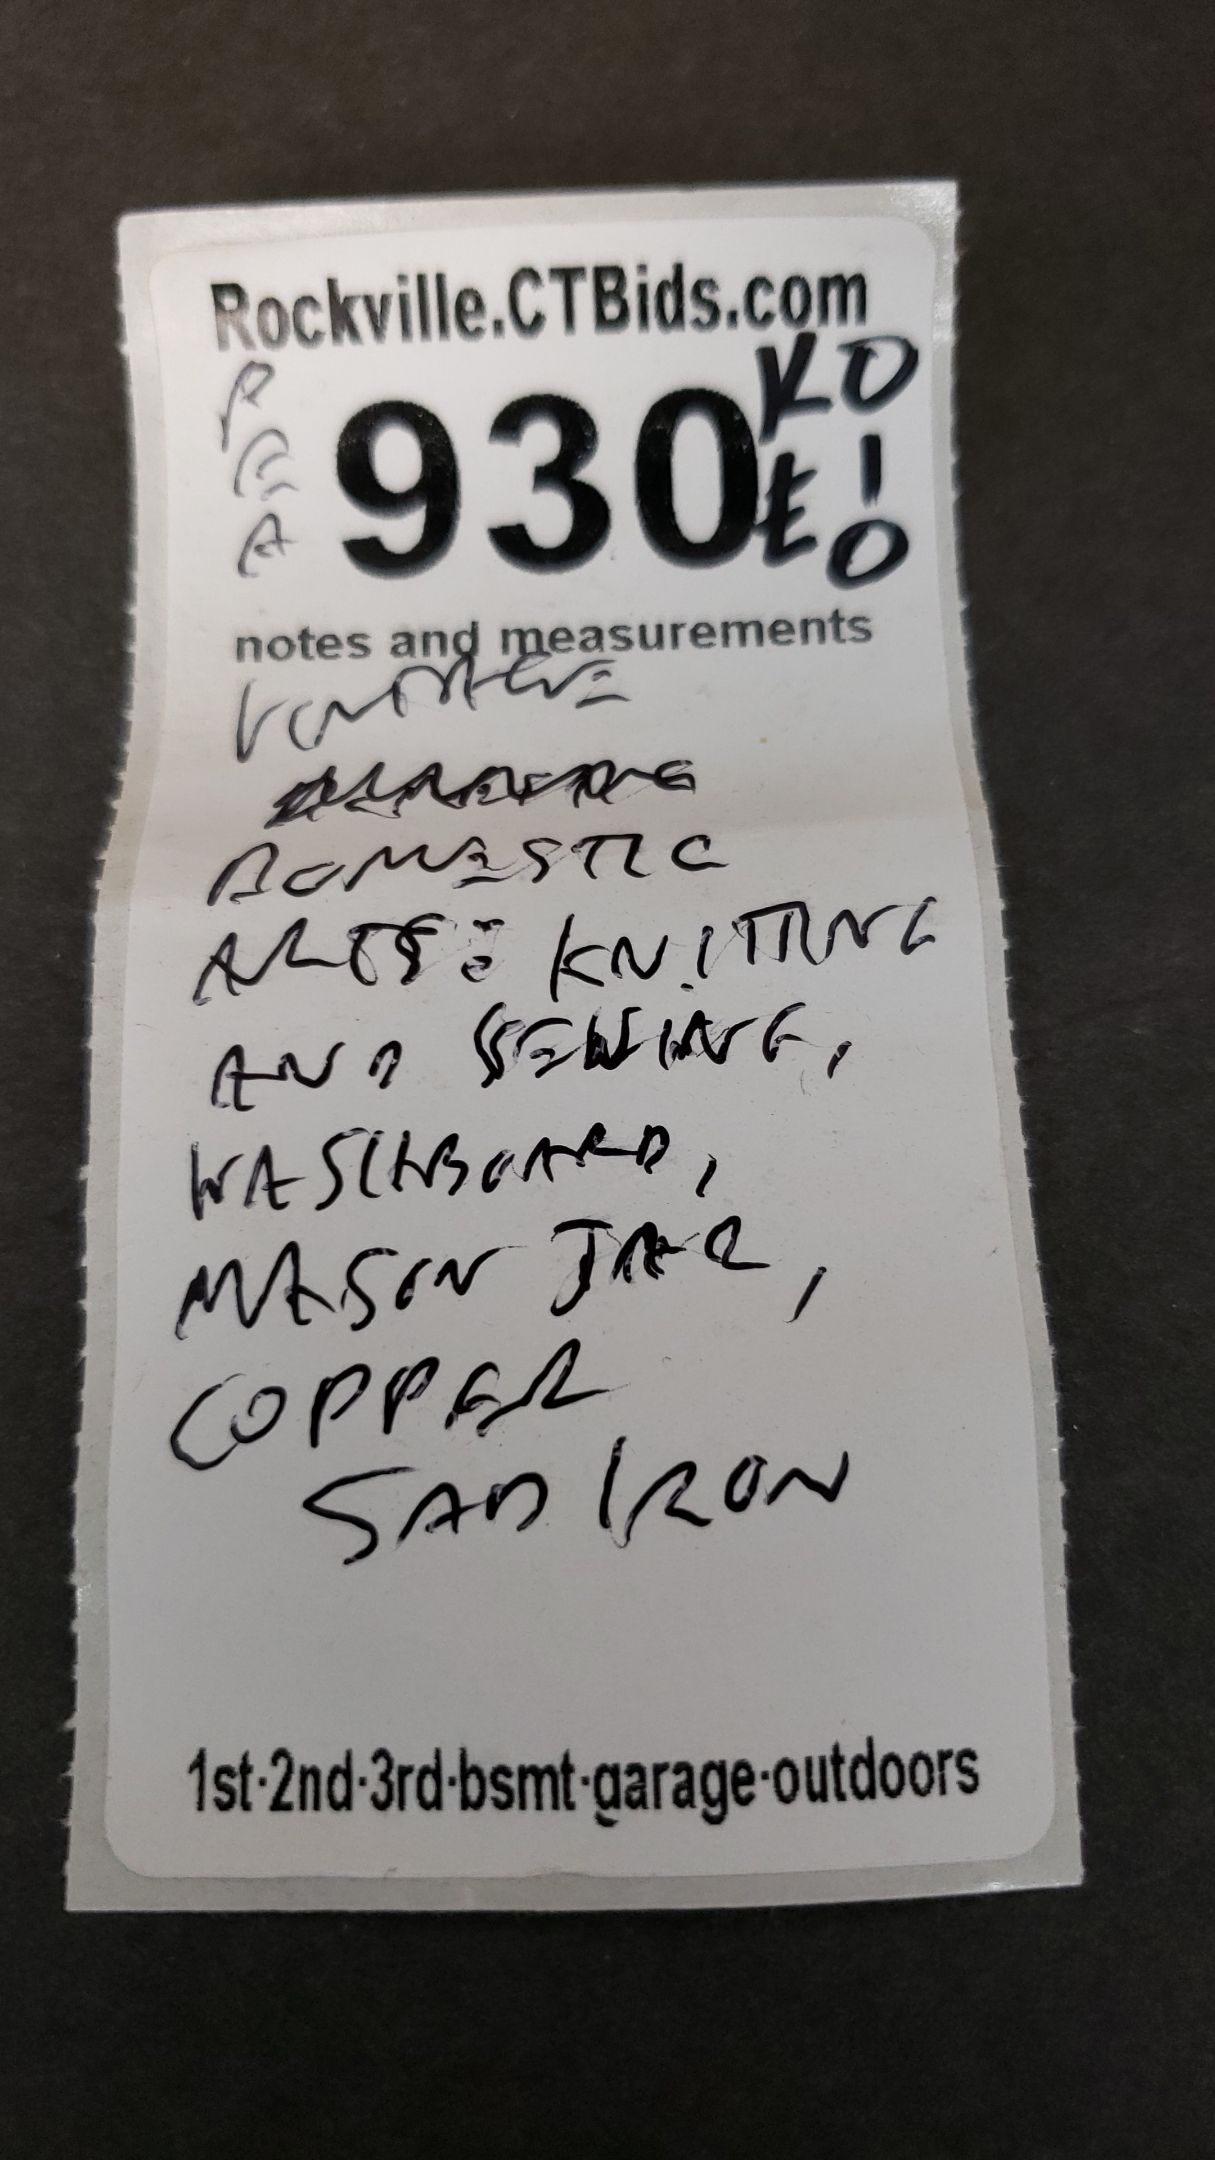 Rockville.CTBids.com
930
KO
notes and measurements
VINTAGE
DOMESTIC
ARTS: KNITTING
AND SEWING,
WASHBOARD,
MASON JAR,
COPPER
SAD IRON
1st·2nd·3rd·bsmt·garage·outdoors